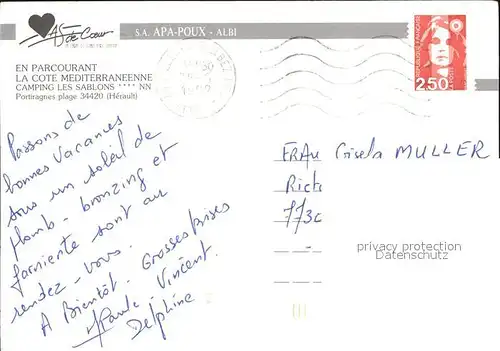 AS de Cœur
S.A. APA-POUX - ALBI
EN PARCOURANT
LA COTE MEDITERRANEENNE
CAMPING LES SABLONS **** NN
Portiragnes plage 34420 (Hérault)
REPUBLIQUE FRANÇAISE
LA POSTE
2,50
Passons de
bonnes vacances
sous un soleil de
plomb - bronzing et
farniente sont au
rendez-vous.
A Bientôt. Grosses Bises
Vincent.
Delphine
FRAU Gisela MULLER
Rich
773c
privacy protection
Datenschutz